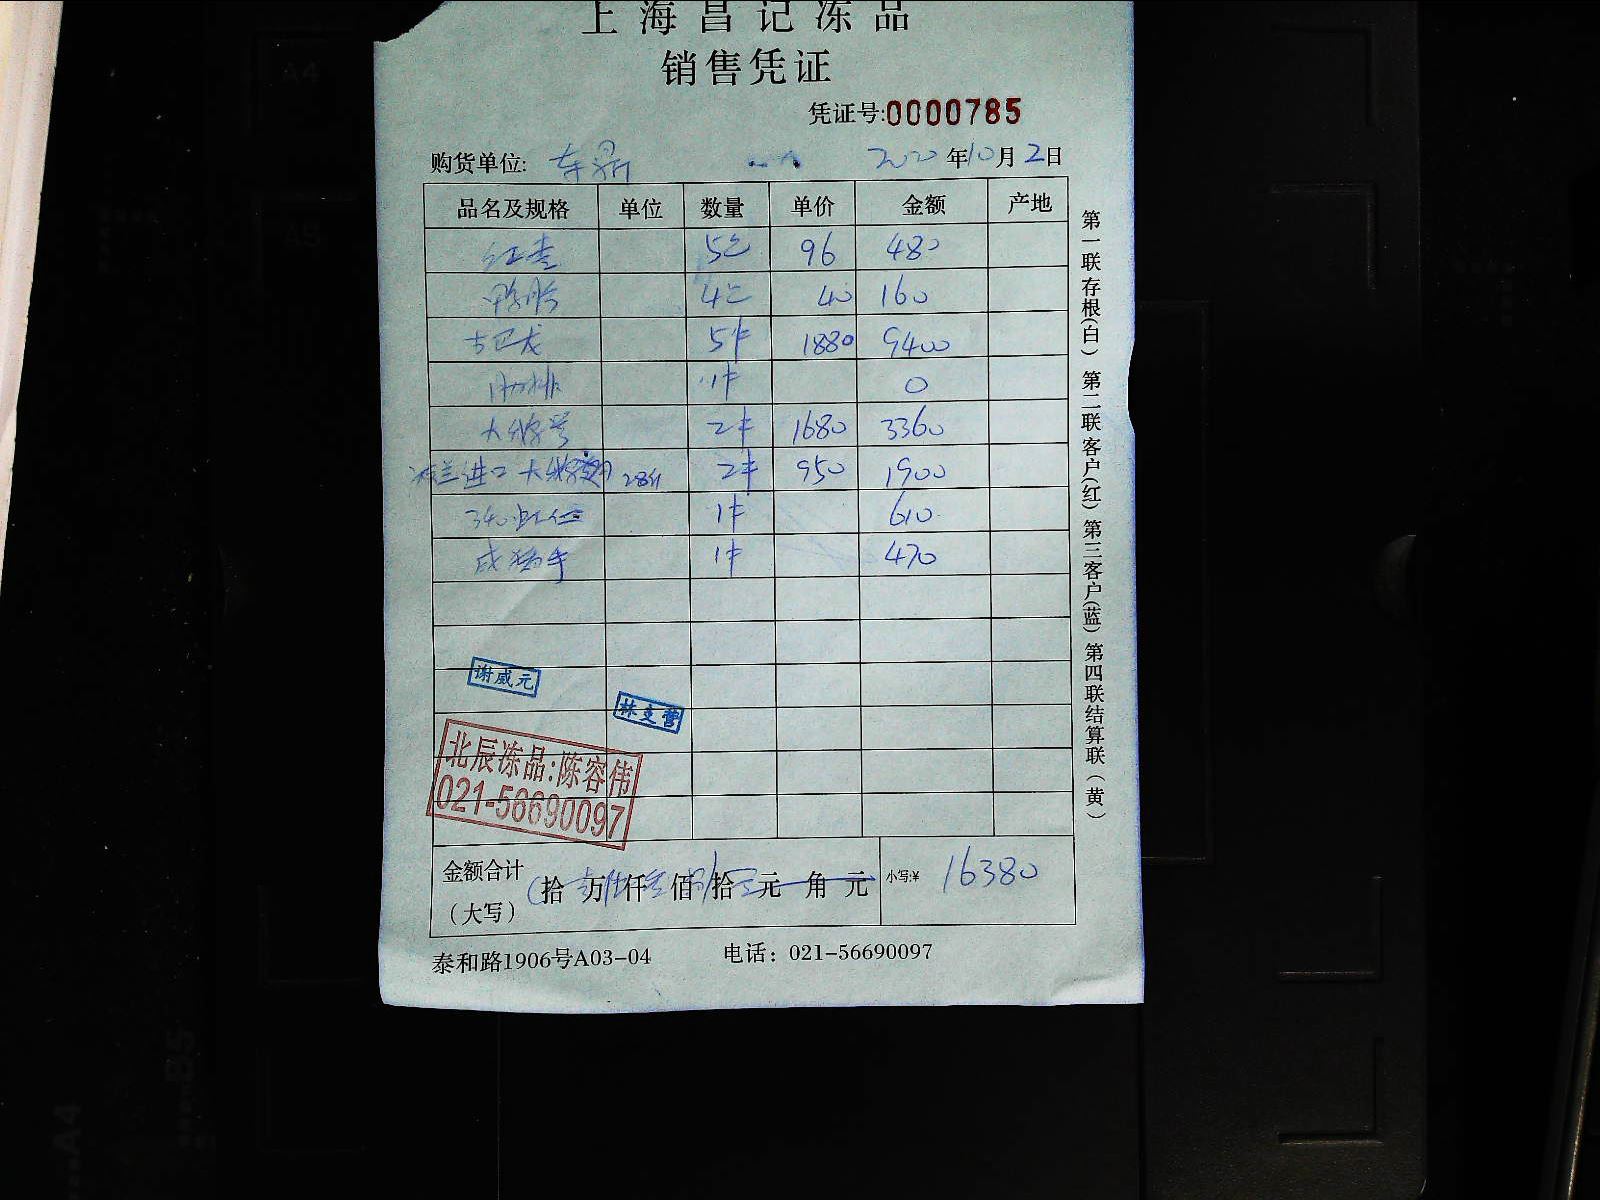 上海昌记冻品
销售凭证
凭证号:0000785
购货单位: 东鼎 2020年10月2日
品名及规格 单位 数量 单价 金额 产地
5包 96 480
4包 40 160
古巴龙 5件 1880 9400
肋排 1件 0
2件 1680 3360
进口 28斤 2件 950 1900
340虾仁 1件 610
1件 470
谢威元
林克营
北辰冻品:陈容伟
021-56690097
金额合计 (拾 万 仟 佰 拾 元 角 元 小写:¥ 16380
（大写）
泰和路1906号A03-04 电话：021-56690097
第一联存根(白) 第二联客户(红) 第三客户(蓝) 第四联结算联(黄)
A4
A5
B5
A4